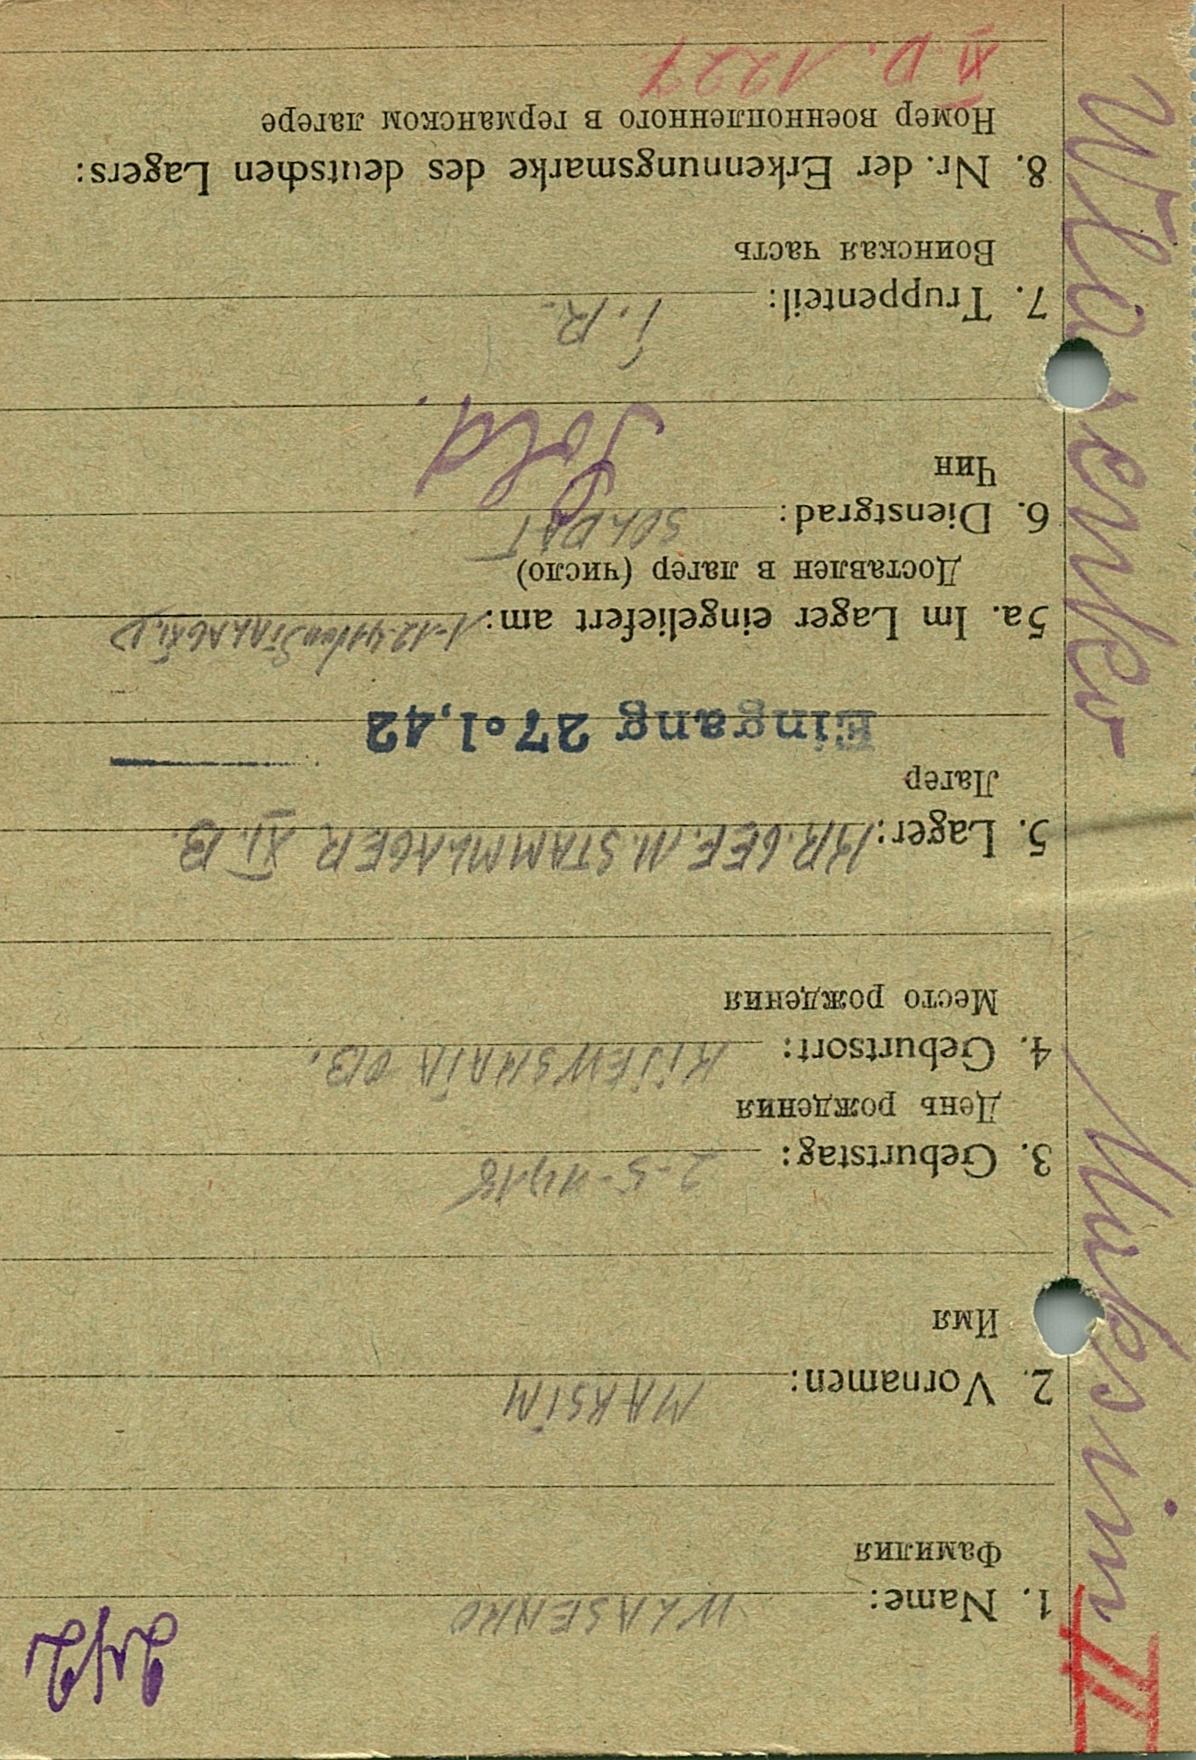 242
1. Name: WLASENKO
Фамилия
2. Vornamen: MAKSIM
Имя
3. Geburtstag: 2-5-1918
День рождения
4. Geburtsort: KIJEWSKAJA OB.
Место рождения
5. Lager: KR. GEF. M. STAMMLAGER XI. B.
Лагер
Eingang 27.1.42
5a. Im Lager eingeliefert am: 1-12-41 von STALAG XI. D
Доставлен в лагер (число)
6. Dienstgrad: SOLDAT
Чин
Sold.
7. Truppenteil: I. R.
Воинская часть
8. Nr. der Erkennungsmarke des deutschen Lagers:
Номер военнопленного в германском лагере
XI D. 1227
II Maksim Wlasenko